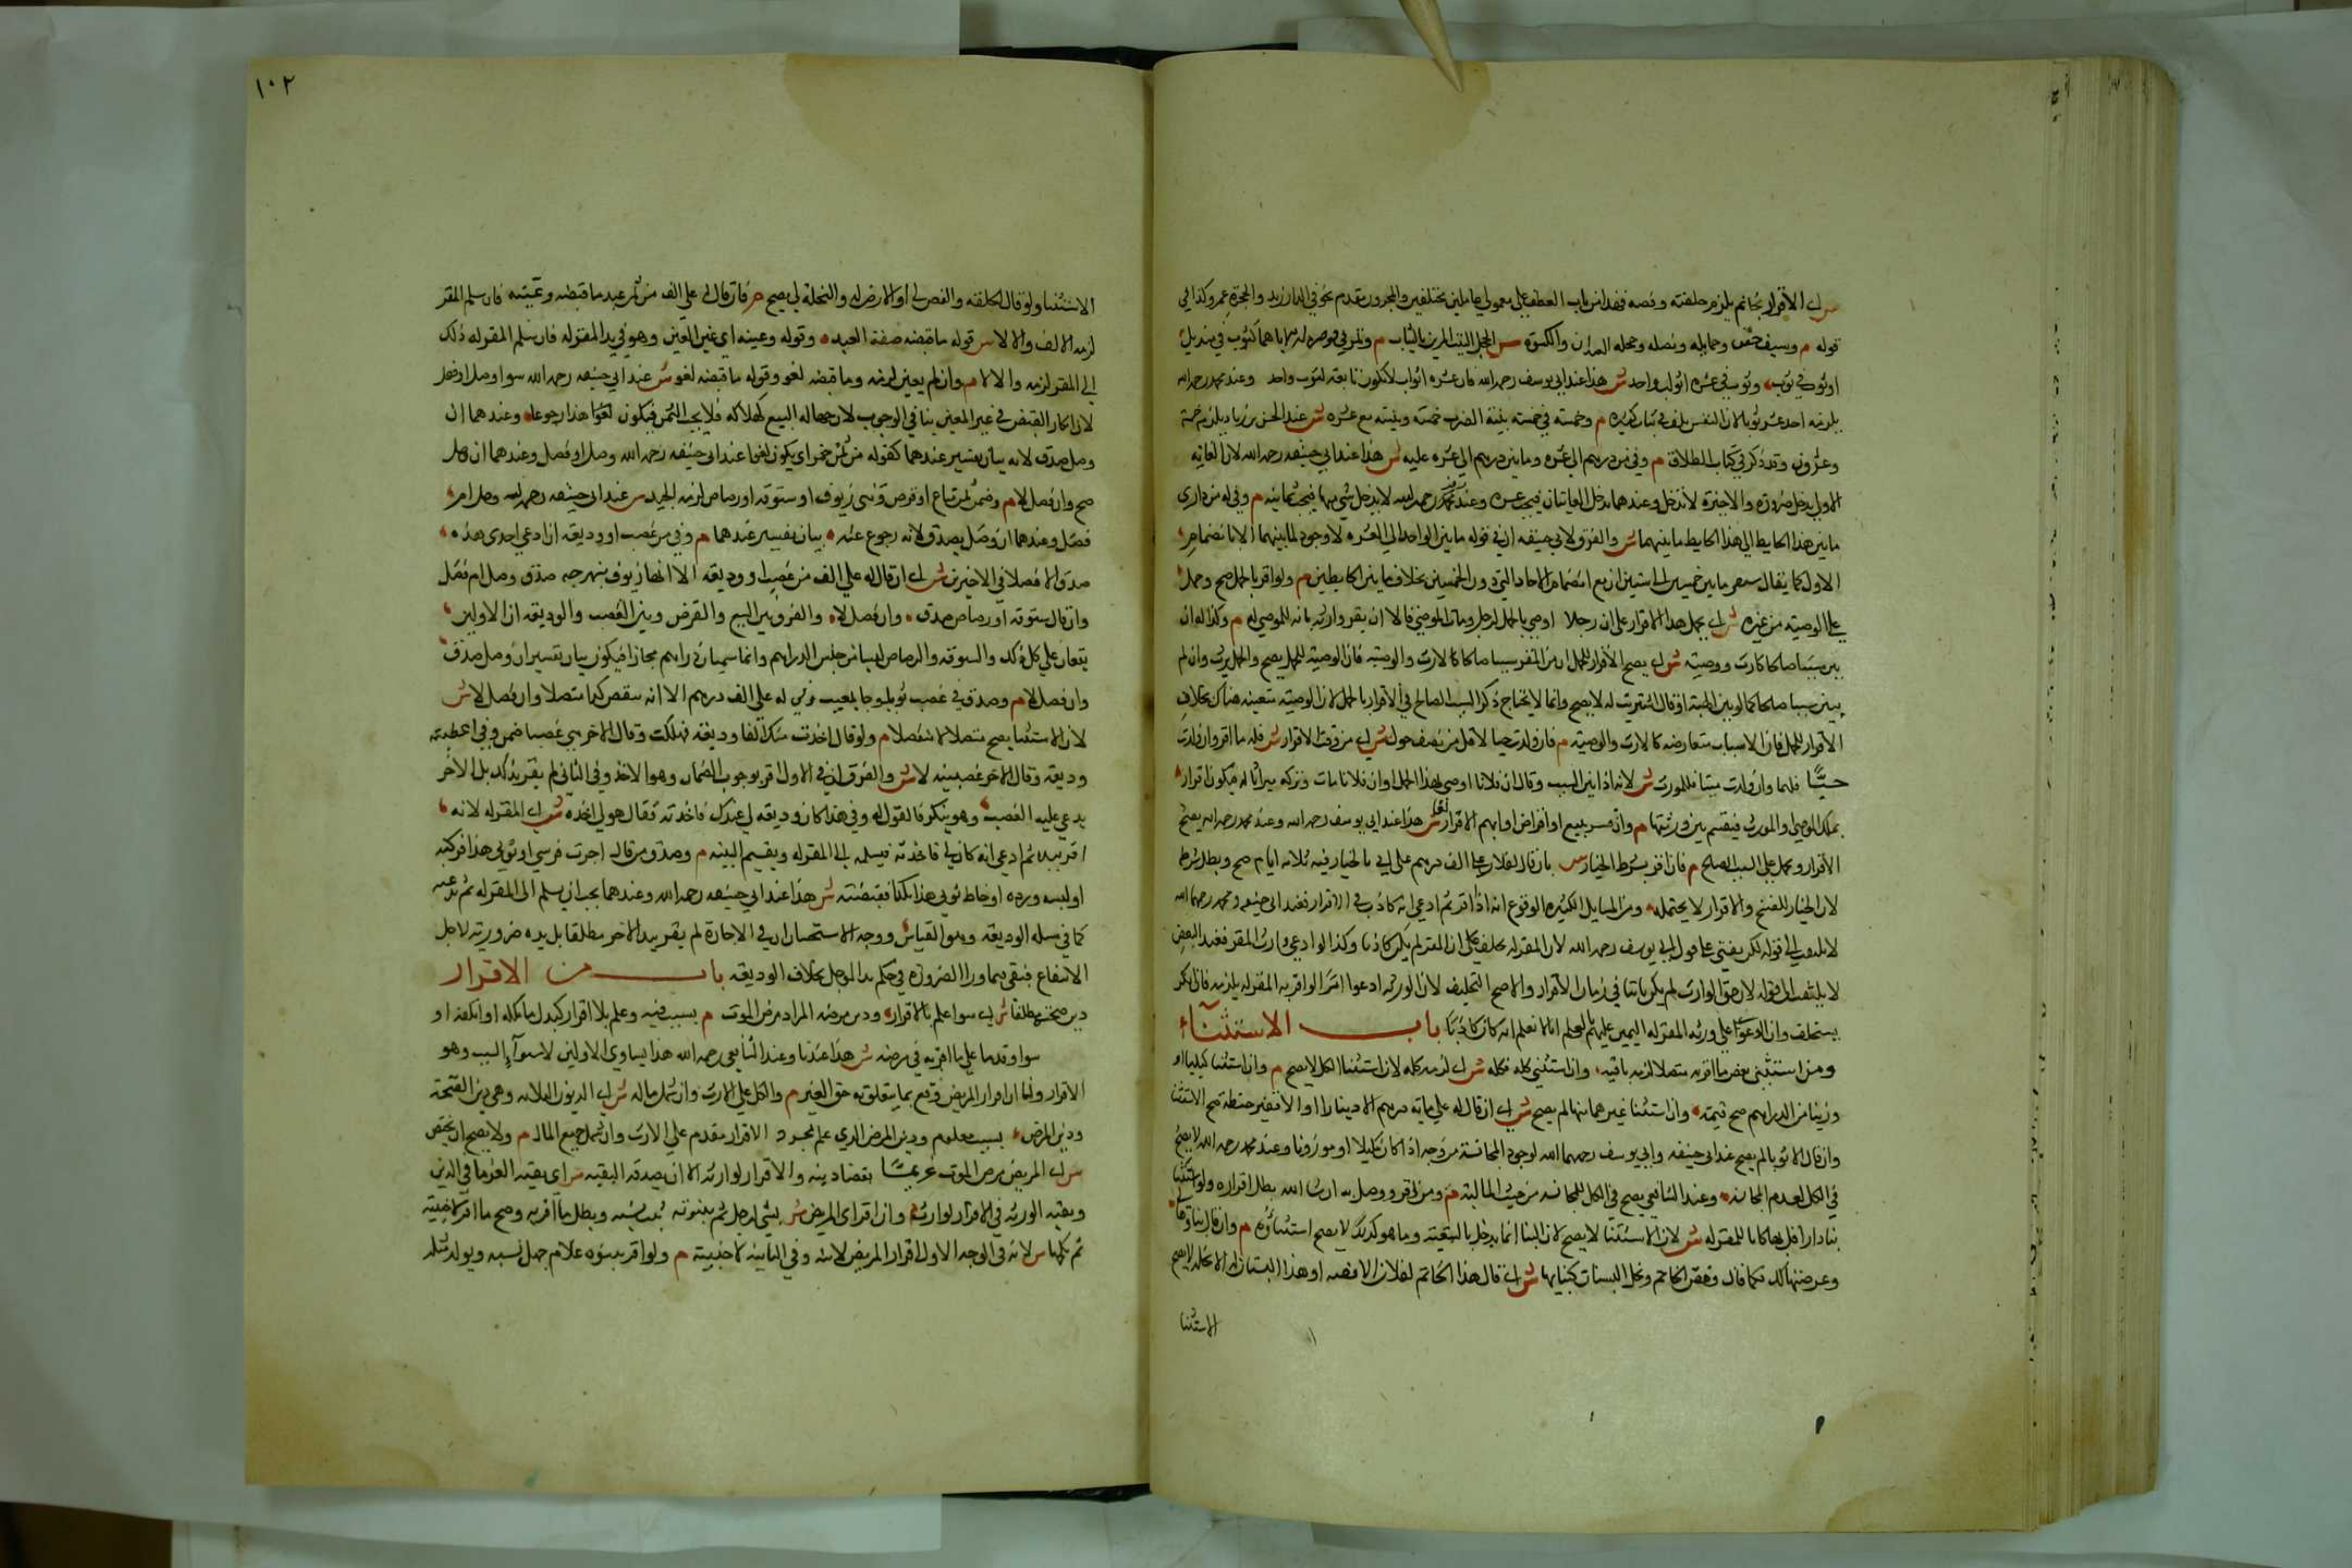 ش اي الاقرار بخاتم يلزم حلقته وفصه فهذا من باب العطف على معمولي عاملين مختلفين والمجرور مقدم نحو في الدار زيد والحجرة عمرو وكذا في
قوله م وسيف جفنه وحمايله ونصله وحجلة العيدان والكسوة ش الحجلة البيت المزين بالثياب م وتمر في قوصرة لزمه اياهما كثوب في منديل
او ثوب في ثوب وثوب في عشرة اثواب واحد ش هذا عند ابي يوسف رحمه الله فان عشرة اثواب لا تكون تابعة لثوب واحد وعند محمد رحمه الله
يلزمه احد عشر ثوبا لان النفيس يلف في ثياب كثيرة م وخمسة في خمسة بنية الضرب خمسة وبنية مع عشرة ش عند الحسن بن زياد يلزم خمسة
وعشرون وقد ذكر في كتاب الطلاق م وفي من درهم الى عشرة وما بين درهم الى عشرة عليه ش هذا عند ابي حنيفه رحمه الله لان الغاية
الاولى يدخل ضرورة والاخيرة لا تدخل وعندهما تدخل الغايتان فيجب عشرة وعند زفر رحمه الله لا يدخل شي منهما فيجب ثمانية م وفي له من داري
ما بين هذا الحايط الى هذا الحايط ما بينهما ش والفرق لابي حنيفه ان في قوله ما بين الواحد الى العشرة لا وجود لما بينهما الا بانضمام
الاول كما يقال سنه ما بين خمسين الى ستين اي مع انضمام الاحاد التي دون الخمسين بخلاف ما بين الحايطين م ولو اقر بالحمل صح وحمل
على الوصية من غيره ش اي يحمل هذا الاقرار على ان رجلا اوصى بالحمل لرجل ومات الموصي فالآن يقر وارثه بانه للموصى له م وكذا له ان
بين سببا صالحا كارث ووصية ش اي يصح الاقرار للحمل ان بين المقر سببا صالحا كالارث والوصية فان الوصية للحمل يصح والحمل يرث وان لم
يبين سببا صالحا كما لو بين الهبة او قال اشتريت له لا يصح وانما لا يحتاج ذكر السبب الصالح في الاقرار بالحمل لان الوصية متعينة هناك بخلاف
الاقرار للحمل فان الاسباب متعارضة كالارث والوصية م فان ولدت حيا لاقل من نصف حول ش اي من وقت الاقرار ش فله ما اقر وان ولدت
حيّين فلهما وان ولدت ميتا فللمورث ش لانه اذا بين السبب وقال ان فلانا اوصى لهذا الحمل او ان فلانا مات وتركه ميراثا له فيكون اقرارا
بملك الموصي والمورث فيقسم بين ورثتهما م وان فسر ببيع او اقراض او ابهم الاقرار لغا ش هذا عند ابي يوسف رحمه الله وعند محمد رحمه الله يصح
الاقرار ويحمل على السبب الصالح م فان اقر بشرط الخيار ش بان قال لفلان على الف درهم على اني بالخيار فيه ثلاثة ايام صح وبطل شرطه
لان الخيار للفسخ والاقرار لا يحتمله ومن المسايل الكثيرة الوقوع انه اذا اقر ثم ادعى انه كاذب في الاقرار فعند ابي حنيفه ومحمد رحمهما الله
لا يلتفت الى قوله لكن يفتى على قول ابي يوسف رحمه الله لان المقر له يحلف على ان المقر لم يكن كاذبا وكذا لو ادعى وارث المقر فعند البعض
لا يلتفت الى قوله لان حق الوارث لم يكن ثابتا في زمان الاقرار والاصح التحليف لان الورثه ادعوا امرا لو اقر به المقر له يلزمه فاذا انكر
يستحلف وان الدعوى على ورثه المقر له اليمين عليهم بالعلم انا لا نعلم انه كان كاذبا باب الاستثناء
ومن استثنى بعض ما اقر به متصلا لزمه باقيه وان استثنى كله فكله ش اي لزمه كله لان استثنا الكل لا يصح م وان استثنا كيليا او
وزنيا من الدراهم صح قيمته وان استثنا غيرهما منها لم يصح ش اي ان قال له علي ماية درهم الا دينارا او الا قفيز حنطة صح الاستثنا
وان قال الا ثوبا لم يصح عند ابي حنيفه وابي يوسف رحمهما الله لوجود المجانسة من وجه اذا كان مكيلا او موزونا وعند محمد رحمه الله لا يصح
في الكل لعدم المجانسه وعند الشافعي يصح في الكل للمجانسه من حيث المالية م ومن اقر ووصل به ان شا الله بطل اقراره ولو استثنا
بنا دار اقر بها كانا للمقر له ش لان الاستثنا لا يصح لان البنا انما يدخل بالتبعية وما هو كذلك لا يصح استثناؤه م وان قال بناؤها
وعرصتها لك فكما قال وفص الخاتم ونخل البستان كبنايها ش اي قال هذا الخاتم لفلان الا فصه او هذا البستان له الا نخله لا يصح
الاستثنا
١٠٢
الاستثنا ولو قال الحلقة له والفص لي او الارض له والنخلة لي يصح م فان قال له علي الف من ثمن عبد ما قبضته وعينه فان سلم المقر
لزمه الالف والا لا ش قوله ما قبضته صفة العبد وقوله وعينه اي عين العبد وهو في يد المقر له فان سلم المقر له ذلك
الى المقر لزمه والا لا م وان لم يعين لزمه وما قبضته لغو وقوله ما قبضته لغو ش عند ابي حنيفه رحمه الله سوا وصل او فصل
لان انكار القبض في غير المعين ينافي الوجوب لان جهالة المبيع كهلاكه فلا يجب الثمن فيكون لغوا هذا رجوعا وعندهما ان
وصل صدق لانه بيان تفسير عندهما كقوله من ثمن خمر اي يكون لغوا عند ابي حنيفه رحمه الله وصل او فصل وعندهما ان وصل
صح وان فصل لا م وفي ثمن متاع او قرض وهي زيوف او ستوقه او رصاص لزمه الجيد ش عند ابي حنيفه رحمه الله وصل ام
فصل وعندهما ان وصل يصدق لانه رجوع عنه بيان تفسير عندهما م وفي من غصب او وديعه ان ادعى احدى هذه
صدق الا فصلا في الاخيرين ش اي ان قال له علي الف من غصب او وديعه الا انها زيوف نبهرجه صدق وصل ام فصل
وان قال ستوقه او رصاص صدق وان فصل لا والفرق بين البيع والقرض وبين الغصب والوديعه ان الاولين
يقعان على كل ذلك والستوقه والرصاص ليسا من جنس الدراهم وانما سميا دراهم مجازا فيكون بيان تفسير ان وصل صدق
وان فصل لا م وصدق في غصب ثوبا وجا بمعيب وفي له علي الف درهم الا انه ينقص كذا متصلا وان فصل لا ش
لان الاستثنا يصح متصلا لا منفصلا م ولو قال اخذت منك الفا وديعه فهلكت وقال الاخر بل غصبا ضمن وفي اعطيته
وديعه وقال الاخر غصبتنيه لا ش والفرق ان في الاول اقر بوجوب الضمان وهو الاخذ وفي الثاني لم يقر بذلك بل الاخر
يدعي عليه الغصب وهو ينكر فالقول له وفي هذا كان وديعه لي عندك فاخذته فقال هو لي اخذه ش اي المقر له لانه
اقر بيده ثم ادعى انه كان لي فاخذته فيسلمه الى المقر له ويقيم البينه م وصدق من قال اجرت فرسي او ثوبي هذا فركبه
او لبسه ورده او خاط ثوبي هذا بكذا فقبضته ش هذا عند ابي حنيفه رحمه الله وعندهما يجب ان يسلم الى المقر له ثم يدعيه
كما في مسله الوديعه وهو القياس ووجه الاستحسان ان في الاجارة لم يقر بيد الاخر مطلقا بل يده ضرورية لاجل
الانتفاع فبقي فيما ورا الضرورة في حكم يد الموجر بخلاف الوديعه باب من الاقرار
دين صحته مطلقا ش اي سوا علم بالاقرار ودين مرضه المراد مرض الموت م بسبب فيه وعلم بلا اقرار كبدل ما ملكه او اتلفه او
سوا وقدما على ما اقر به في مرضه ش هذا عندنا وعند الشافعي رحمه الله هذا يساوي الاولين لاستوآء السبب وهو
الاقرار ولنا ان اقرار المريض وقع بما يتعلق به حق الغير م والكل على الارث وان شمل ماله ش اي الديون الثلاثه وهي دين الصحة
ودين المرض بسبب معلوم ودين المرض الذي علم بمجرد الاقرار مقدم على الارث وان شمل جميع المال م ولا يصح ان يخص
ش اي المريض مرض الموت غريما بقضا دينه والاقرار لوارثه الا ان يصدقه البقيه ش اي بقيه الغرما في الدين
وبقيه الورثه في الاقرار لوارث م وان اقر اي المريض ش بشي لرجل ثم ببنوته ثبت نسبه وبطل ما اقر به وصح ما اقر لاجنبية
ثم نكحها ش لانه في الوجه الاول اقرار المريض لابنه وفي الثانية لاجنبية م ولو اقر ببنوة غلام جهل نسبه ويولد مثله